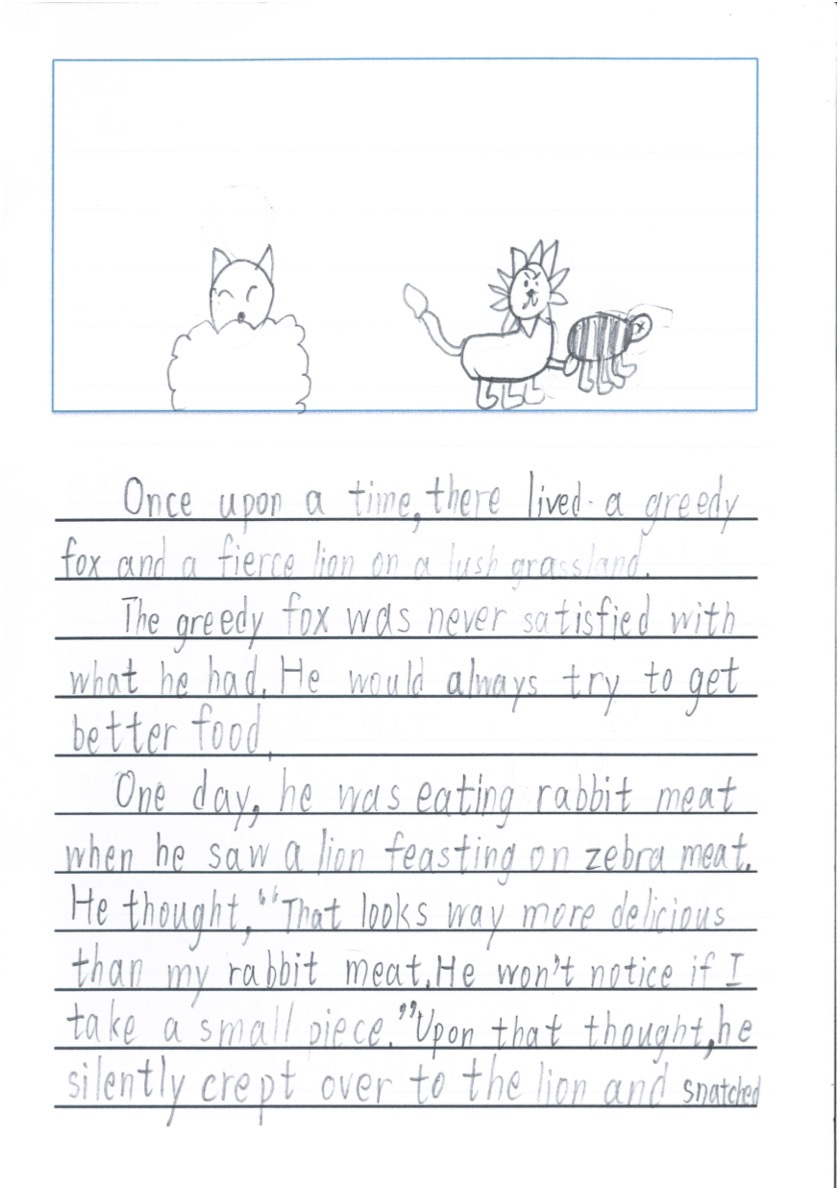 Once upon a time, there lived a greedy
fox and a fierce lion on a lush grassland.
The greedy fox was never satisfied with
what he had. He would always try to get
better food.
One day, he was eating rabbit meat
when he saw a lion feasting on zebra meat.
He thought, “That looks way more delicious
than my rabbit meat. He won't notice if I
take a small piece.” Upon that thought, he
silently crept over to the lion and snatched